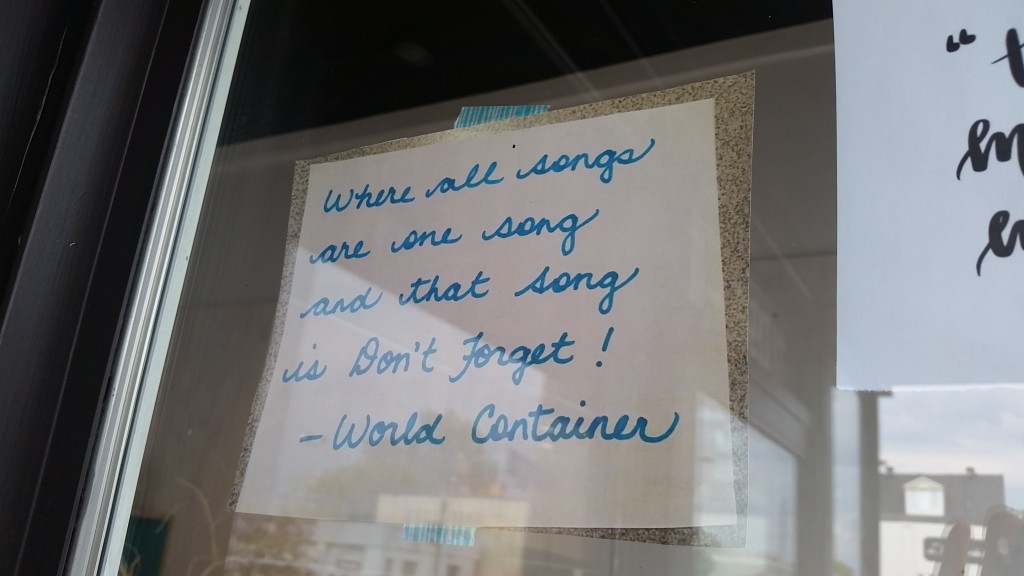 Where all songs
are one song
and that song
is Don't Forget!
- World Container
"